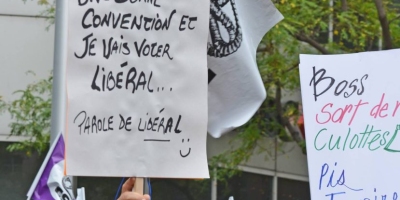 CONVENTION ET
JE VAIS VOTER
LIBÉRAL...
PAROLE DE LIBÉRAL
Boss
Sort de
Culottes
Pis